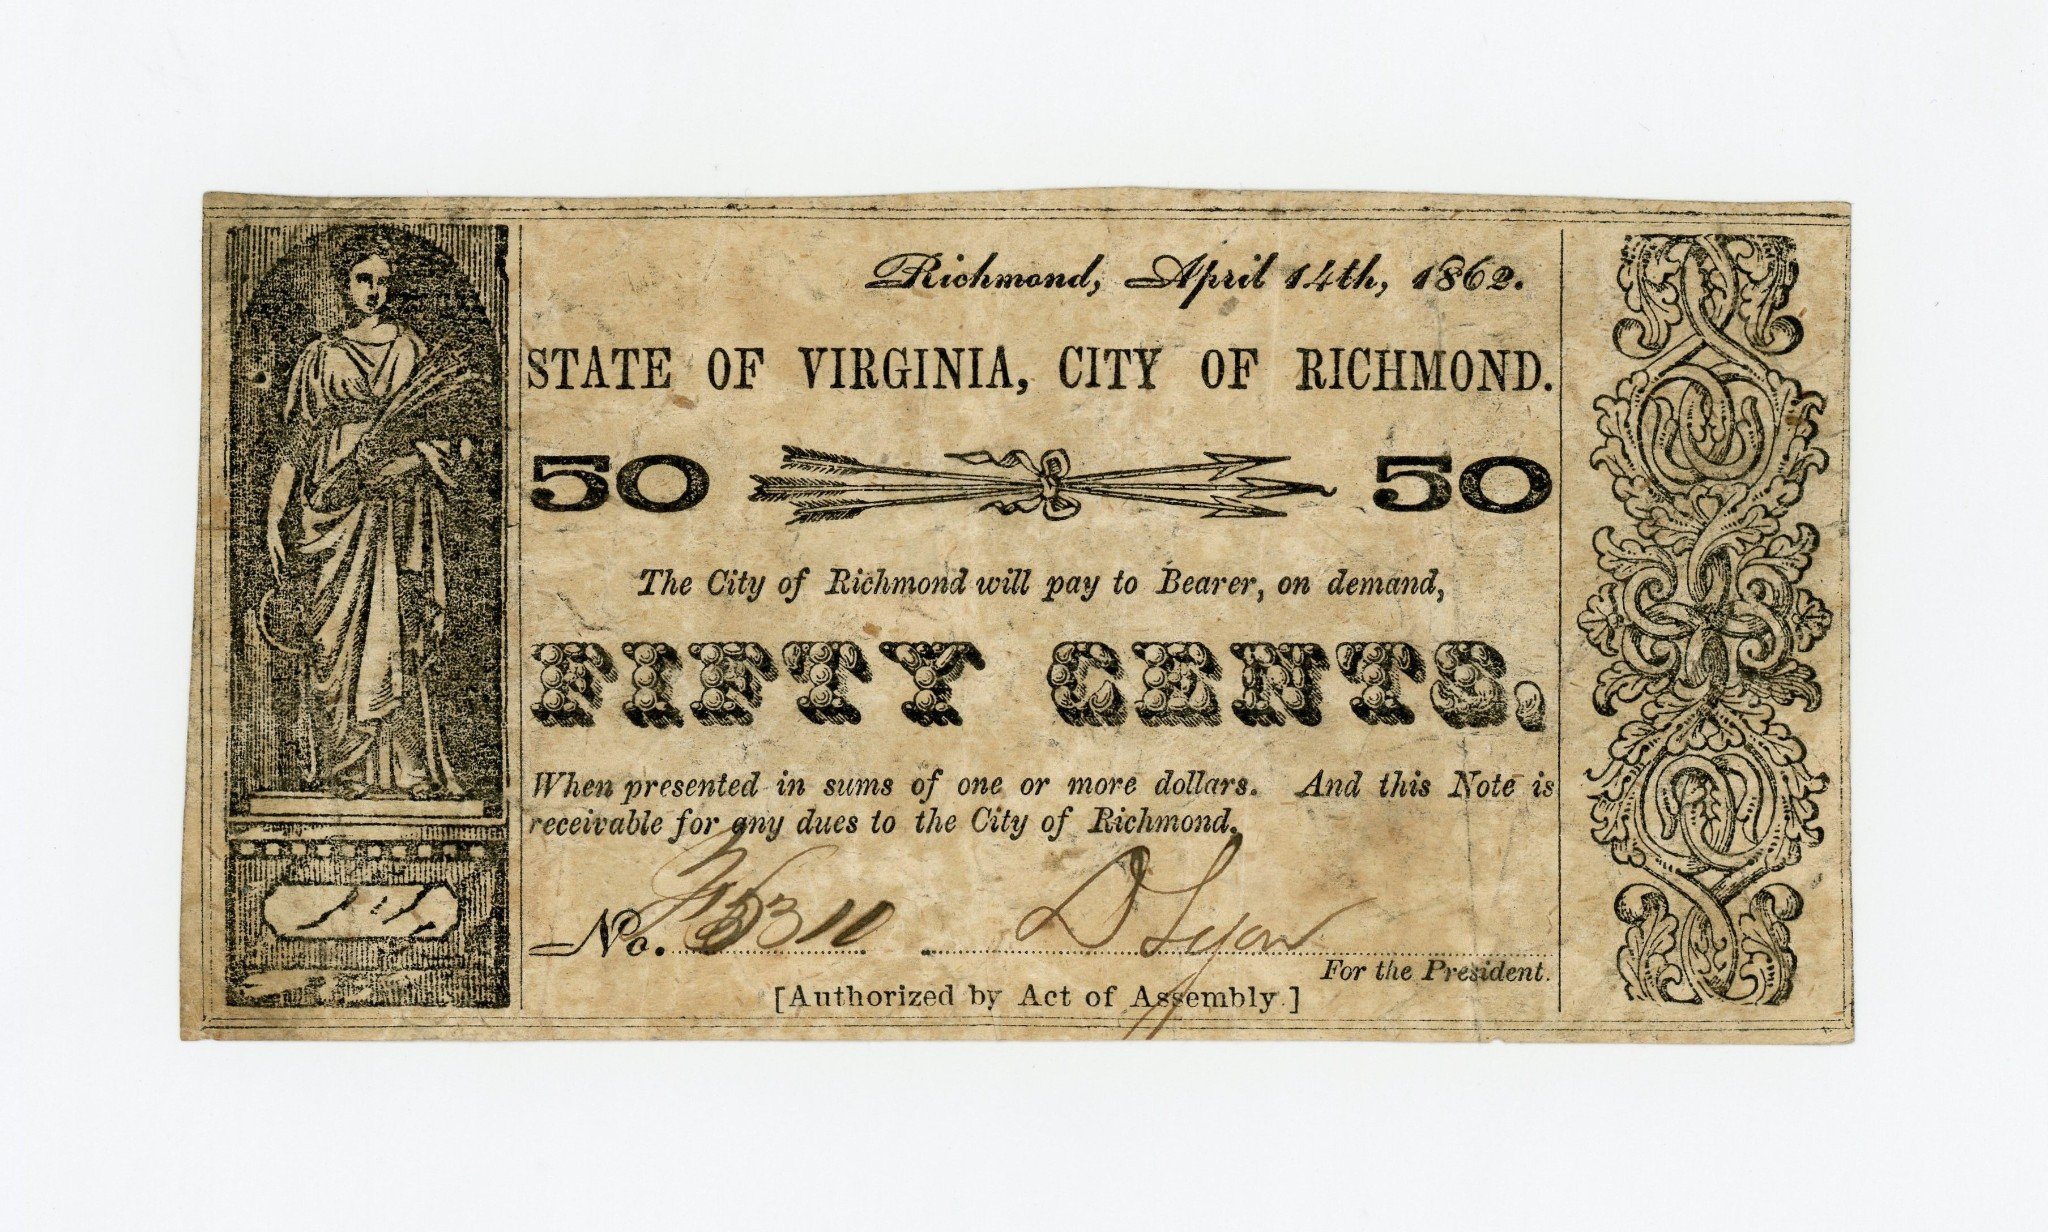 Richmond, April 14th, 1862.
STATE OF VIRGINIA, CITY OF RICHMOND.
50 50
The City of Richmond will pay to Bearer, on demand,
FIFTY CENTS,
When presented in sums of one or more dollars. And this Note is
receivable for any dues to the City of Richmond.
No. 5310 D Lyon
For the President.
[Authorized by Act of Assembly.]